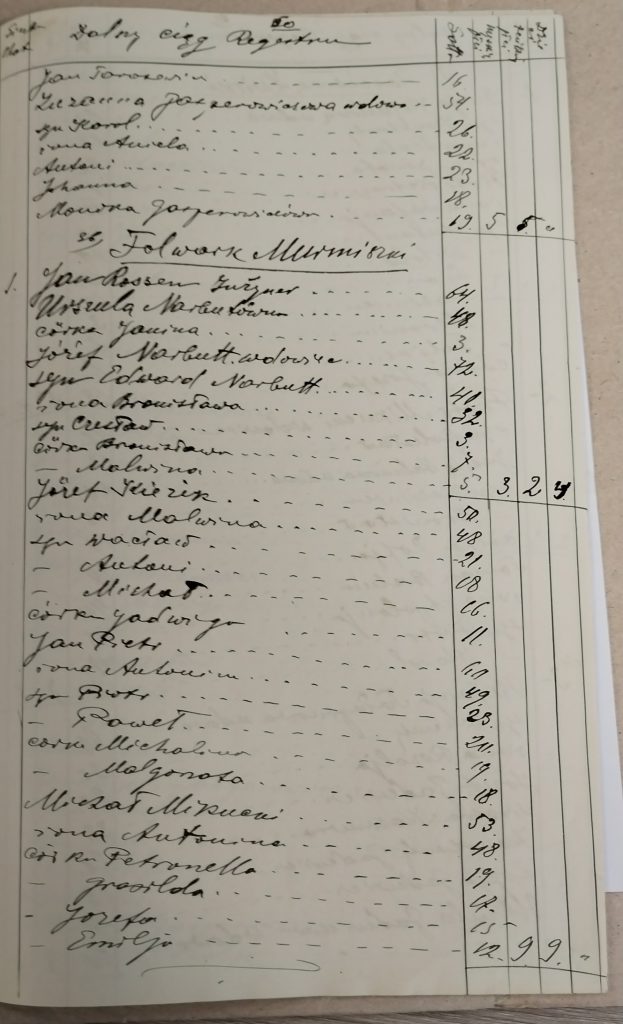 50
Dalszy ciąg Regestru
Jan 16.
Zuzanna Jasperowiczowa wdowa 54.
syn Karol 26.
żona Aniela 22.
Antoni 23.
Johanna 18.
Monika Jasperowiczówna 19. 5 5 "
Folwark Murmiszki
1. Jan Rossen 64.
Urszula Narbutówna 48.
córka Janina 3.
Józef Narbutt wdowiec 72.
syn Edward Narbutt 40.
żona Bronisława 32.
syn Czesław 9.
córka Bronisława 7.
— Malwina 5. 3. 2 4.
Józef Kiezik 50.
żona Malwina 48
syn Wacław 21.
— Antoni 18
— Michał 16.
córka Jadwiga 11.
Jan Pietr 60
żona Antonina 49.
syn Piotr 23.
— Paweł 20.
córka Michalina 19.
— Małgorzata 18.
Michał Mikucki 53.
żona Antonina 48.
córka Petronella 19.
— Grasilda 17.
— Jozefa 15
— Emilja 12. 9 9. "